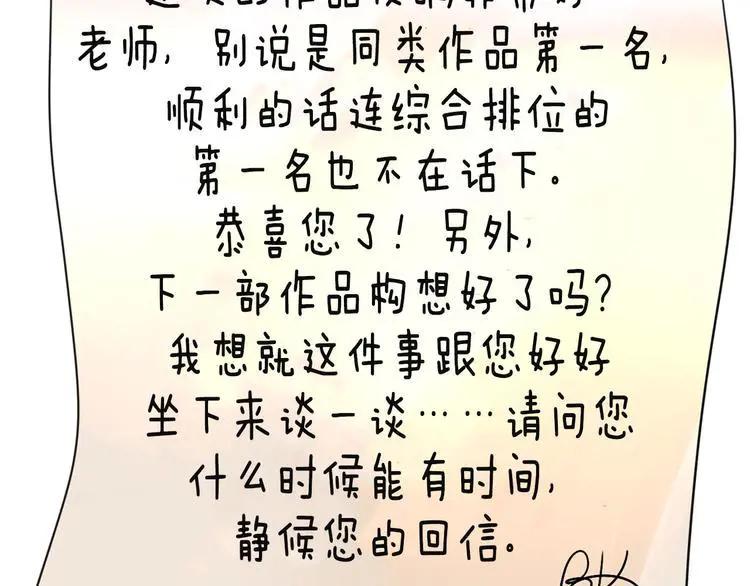 老师，别说是同类作品第一名，
顺利的话连综合排位的
第一名也不在话下。
恭喜您了！另外，
下一部作品构想好了吗？
我想就这件事跟您好好
坐下来谈一谈……请问您
什么时候能有时间，
静候您的回信。